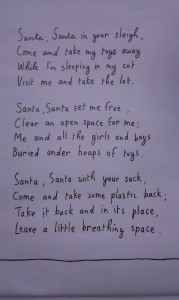 Santa, Santa in your sleigh,
Come and take my toys away
While I'm sleeping in my cot
Visit me and take the lot.
Santa, Santa set me free,
Clear an open space for me;
Me and all the girls and boys
Buried under heaps of toys.
Santa, Santa with your sack,
Come and take some plastic back;
Take it back and in its place,
Leave a little breathing space.